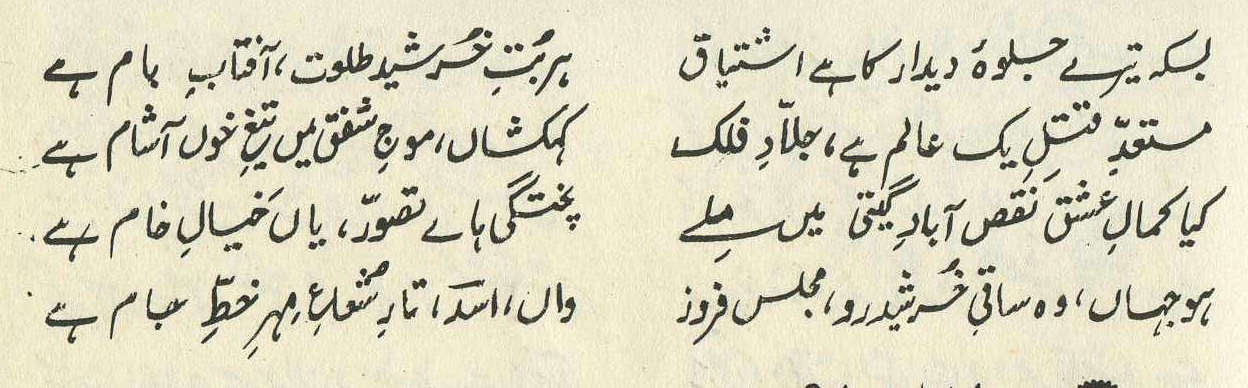 بسکہ تیرے جلوۂ دیدار کا ہے اشتیاق ہر بُتِ خُرشید طلوت، آفتابِ بام ہے
مستعدِّ قتلِ یک عالم ہے، جلاّدِ فلک کہکشاں، موجِ شفق میں تیغِ خوں آشام ہے
کیا کمالِ عشق نَقص آبادِ گیتی میں مِلے پختگی ہاے تصورّ، یاں خَیالِ خام ہے
ہو جہاں، وہ ساقیِ خُرشید رو، مجلس فروز واں، اسدؔ، تارِ شُعاعِ مِہرِ خطِّ جام ہے